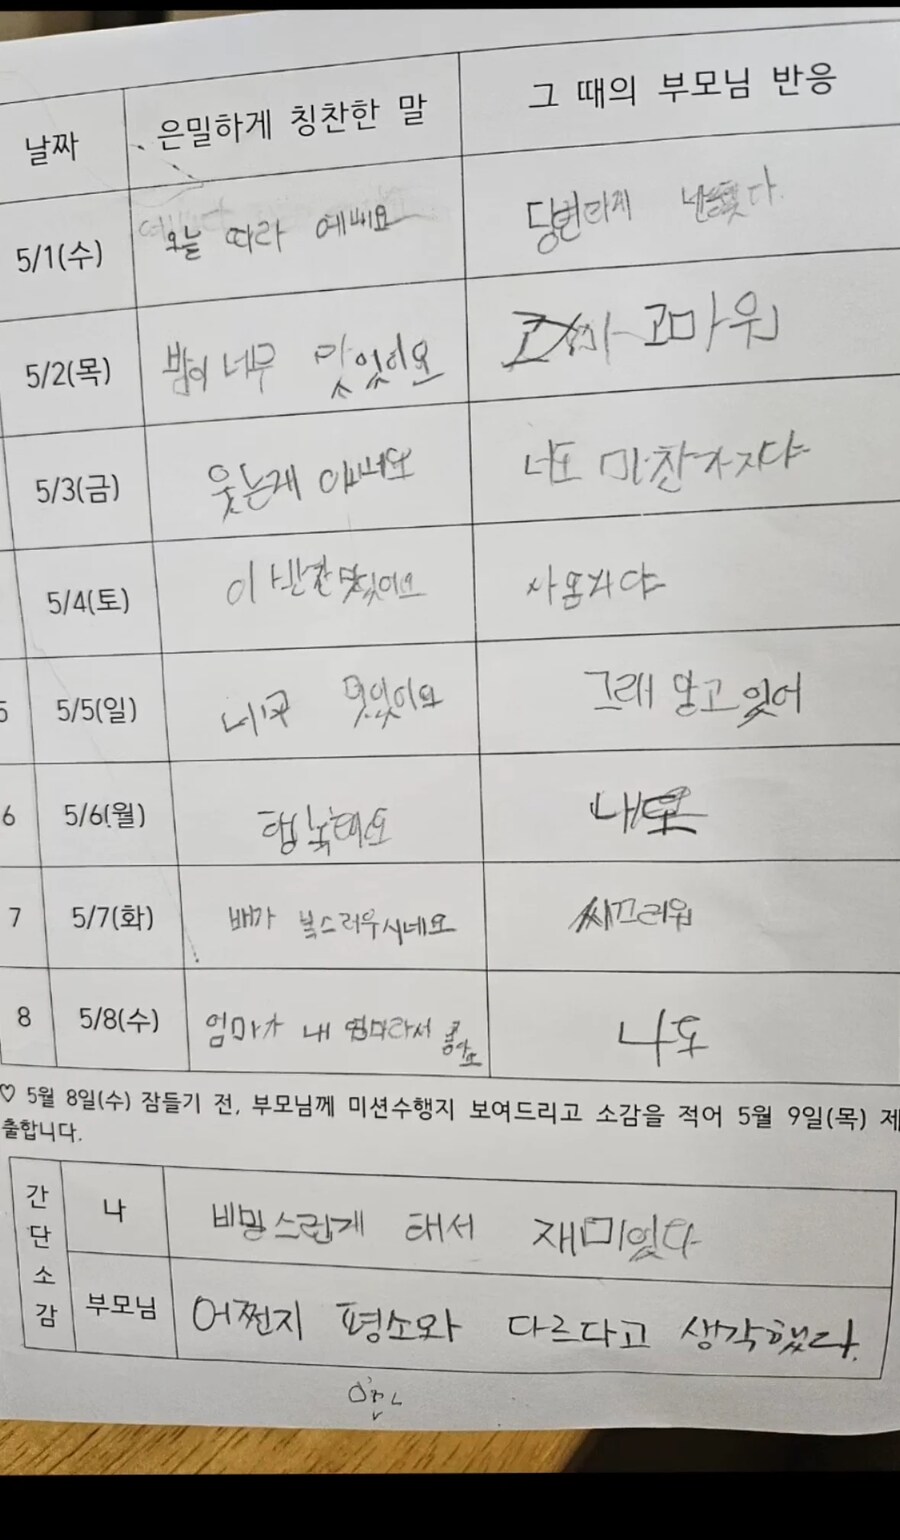 날짜 은밀하게 칭찬한 말 그 때의 부모님 반응
5/1(수) 오늘 따라 예뻐요
5/2(목) 밥이 너무 맛있어요 고마워
5/3(금) 웃는게 너도 마찬가지다
5/4(토) 이 반찬 맛있어요
5/5(일) 멋있어요 그래 알고 있어
6 5/6(월) 행복해요
7 5/7(화) 배가 스러우시네요 씨끄러워
8 5/8(수) 엄마가 내 엄마라서 좋아요 나도
♡ 5월 8일(수) 잠들기 전, 부모님께 미션수행지 보여드리고 소감을 적어 5월 9일(목) 제
출합니다.
간단소감
나 비밀스럽게 해서 재미있다
부모님 어쩐지 평소와 다르다고 생각했다.